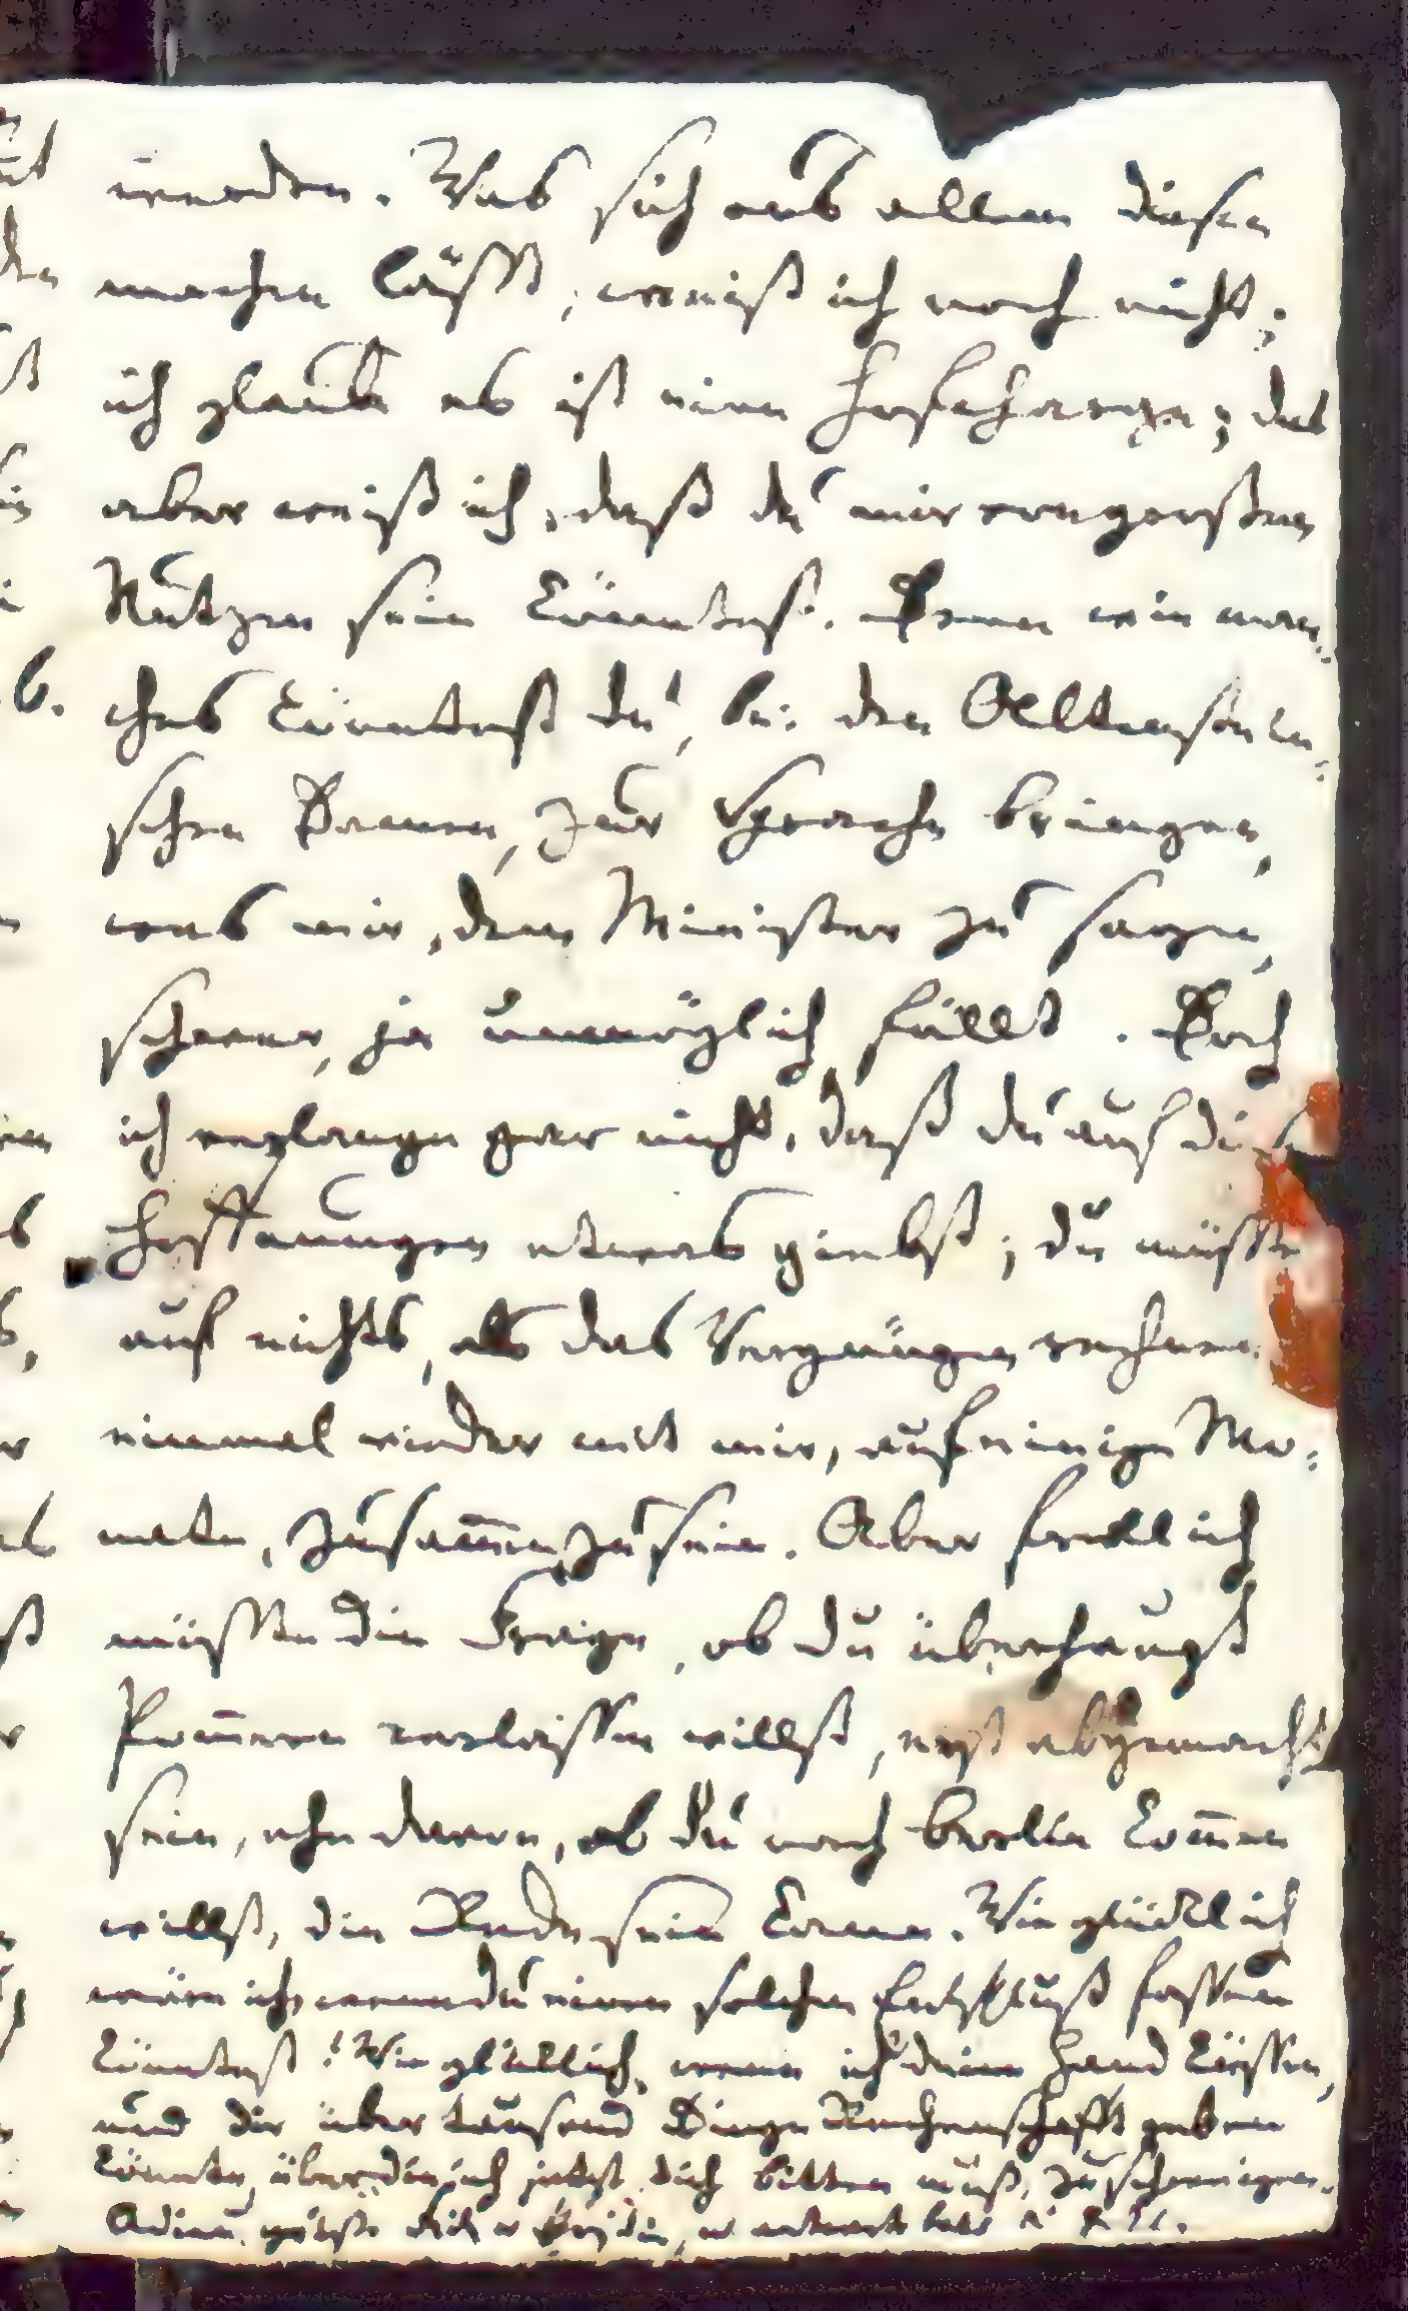 werden. Was sich aus allem diesen
machen läßt, weiß ich noch nicht;
ich glaube es ist eine Hofcharge; das
aber weiß ich, daß du mir von großem
Nutzen sein könntest. Denn wie man-
ches könntest du, bei den Altenstein-
schen Damen, zur Sprache bringen,
was mir, dem Minister zu sagen,
schwer, ja unmöglich fällt. Doch
ich verlange gar nicht, daß du auf diese
Hoffnungen etwas giebst; du müßte
auf nichts, als das Vergnügen rechnen
einmal wieder mit mir, auf einige Mo-
nate, zusammen zu sein. Aber freilich
müßte die Frage, ob du überhaupt
Pom̄ern verlassen willst, erst abgemacht
sein, ehe davon, ob du nach Berlin kom̄en
willst, die Rede sein kann. Wie glücklich
wäre ich, wenn du einen solchen Entschluß fassen
könntest! Wie glücklich, wenn ich deine Hand küssen,
und dir über tausend Dinge Rechenschafft geben
könnte, über die ich jetzt dich bitten muß, zu schweigen.
Adieu, grüße